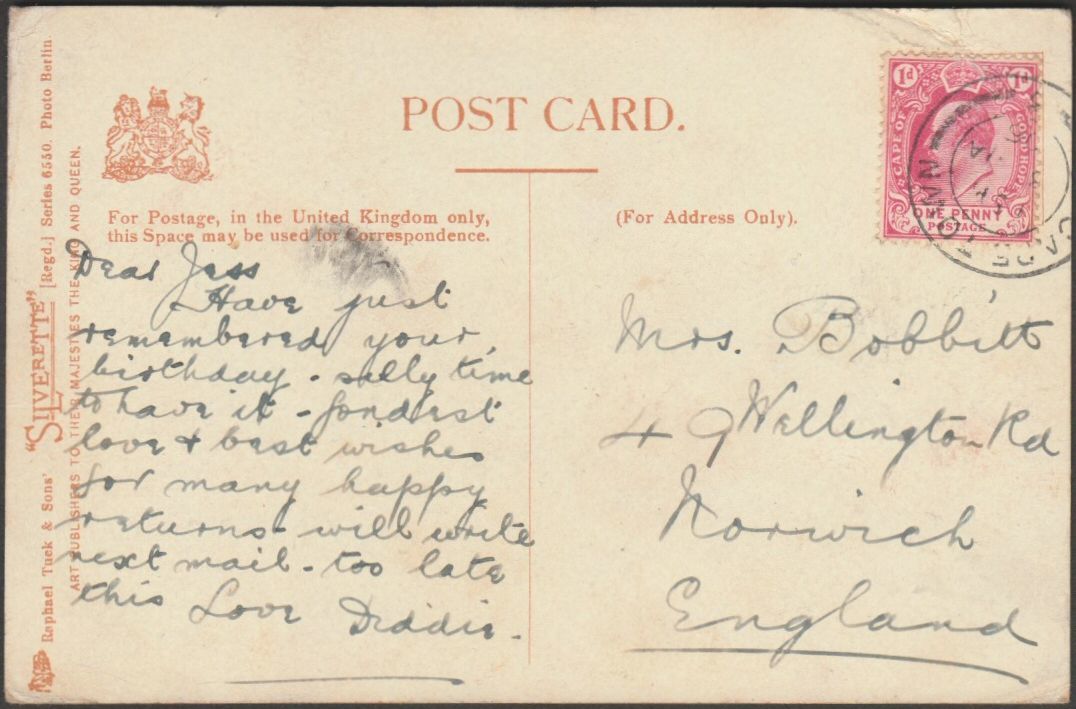 POST CARD.
For Postage, in the United Kingdom only,
this Space may be used for Correspondence.
(For Address Only).
1d 1d
CAPE OF GOOD HOPE
ONE PENNY
POSTAGE
CAPE TOWN
Dear Jess
Have just
remembered your
birthday - silly time
to have it - fondest
love & best wishes
for many happy
returns - will write
next mail - too late
this Love Diddie.
Mrs. Bobbitt
49 Wellington Rd
Norwich
England
Raphael Tuck & Sons' "SILVERETTE" [Regd.] Series 6550. Photo Berlin.
ART PUBLISHERS TO THEIR MAJESTIES THE KING AND QUEEN.